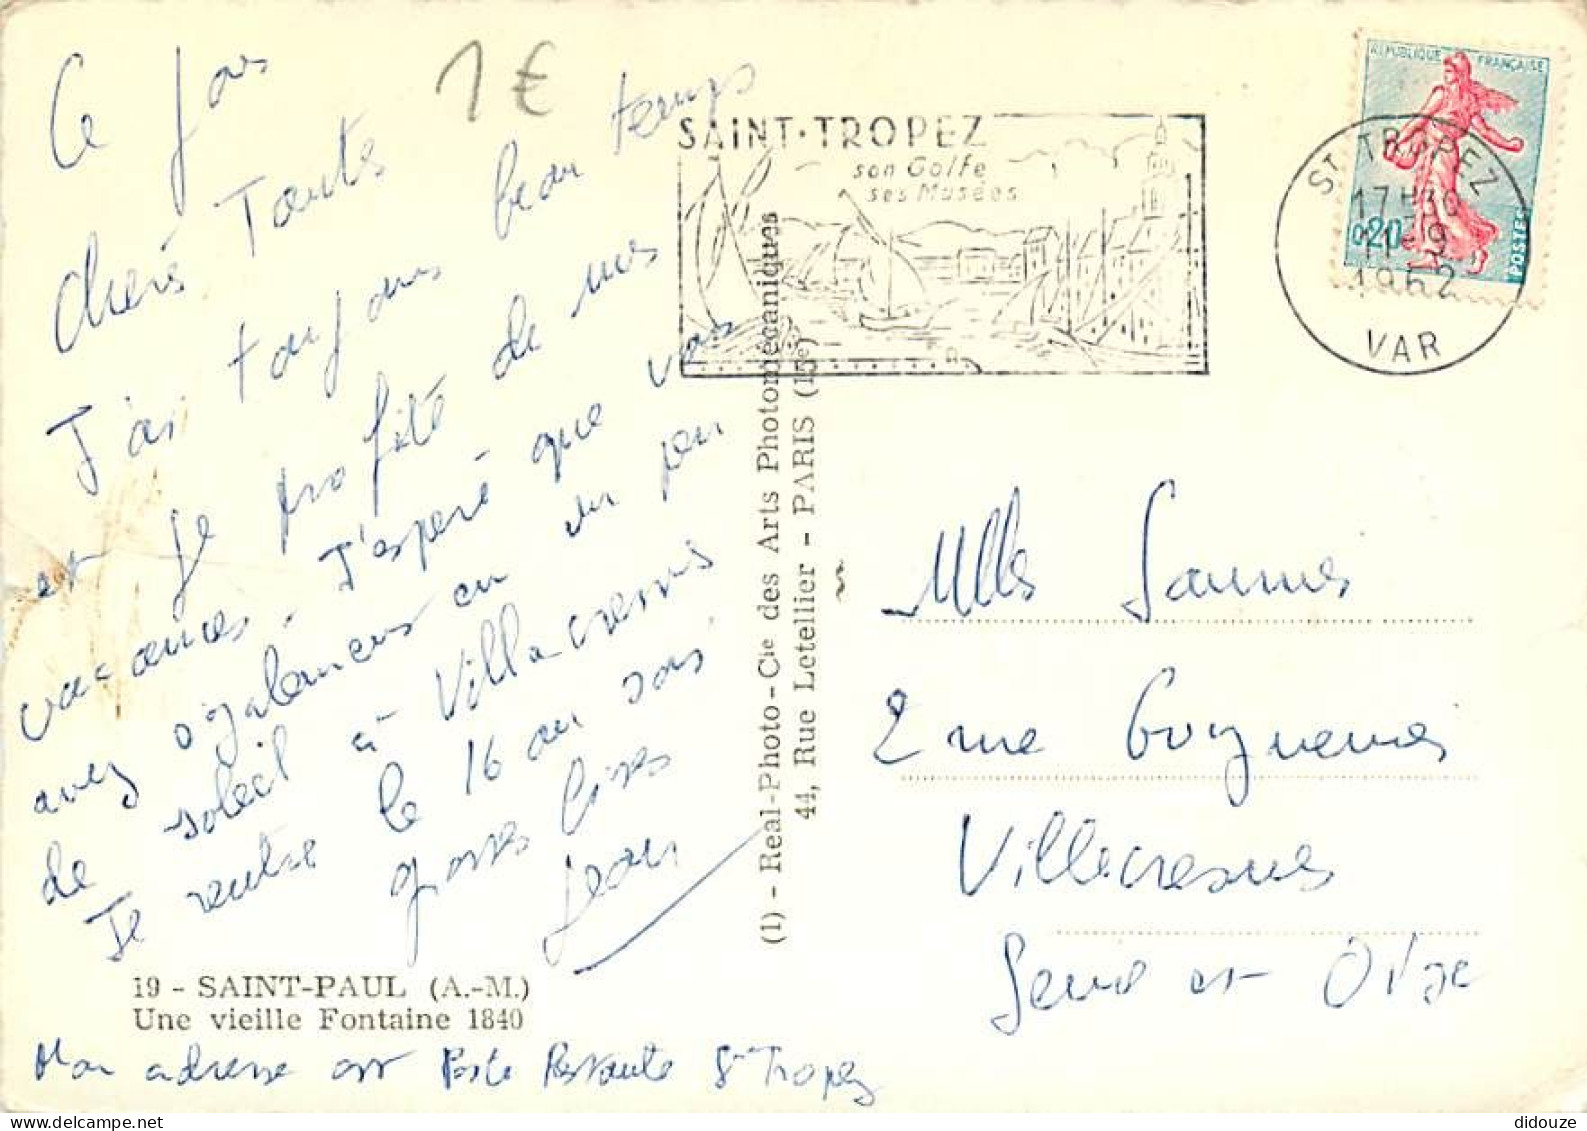 1€
Ce jour
chères Toutes
J'ai toujours beau temps
et je profite de mes
vacances. J'espère que vous
avez également eu un peu
de soleil à Villecresnes
Je rentre le 16 au soir
grosses bises
Jean
19 - SAINT-PAUL (A.-M.)
Une vieille Fontaine 1840
Mon adresse est Poste Restante St Tropez
(1) - Real-Photo-Cie des Arts Photomécaniques
44, Rue Letellier - PARIS (15e)
SAINT-TROPEZ
son Golfe
ses Musées
RÉPUBLIQUE FRANÇAISE
0,20
POSTES
ST TROPEZ
17H30
11-9
1962
VAR
Mlles
2 rue
Villecresnes
Seine et Oise
didouze
Delcampe.net